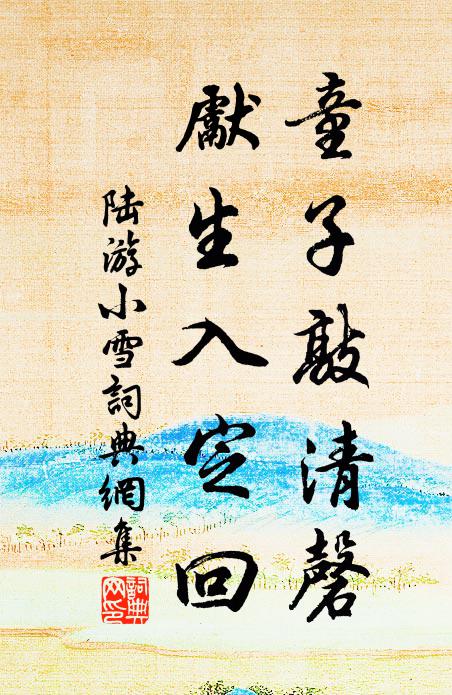 童子敲清磬
獻生入定回
陸游小雪詞典網集
詞典
网印